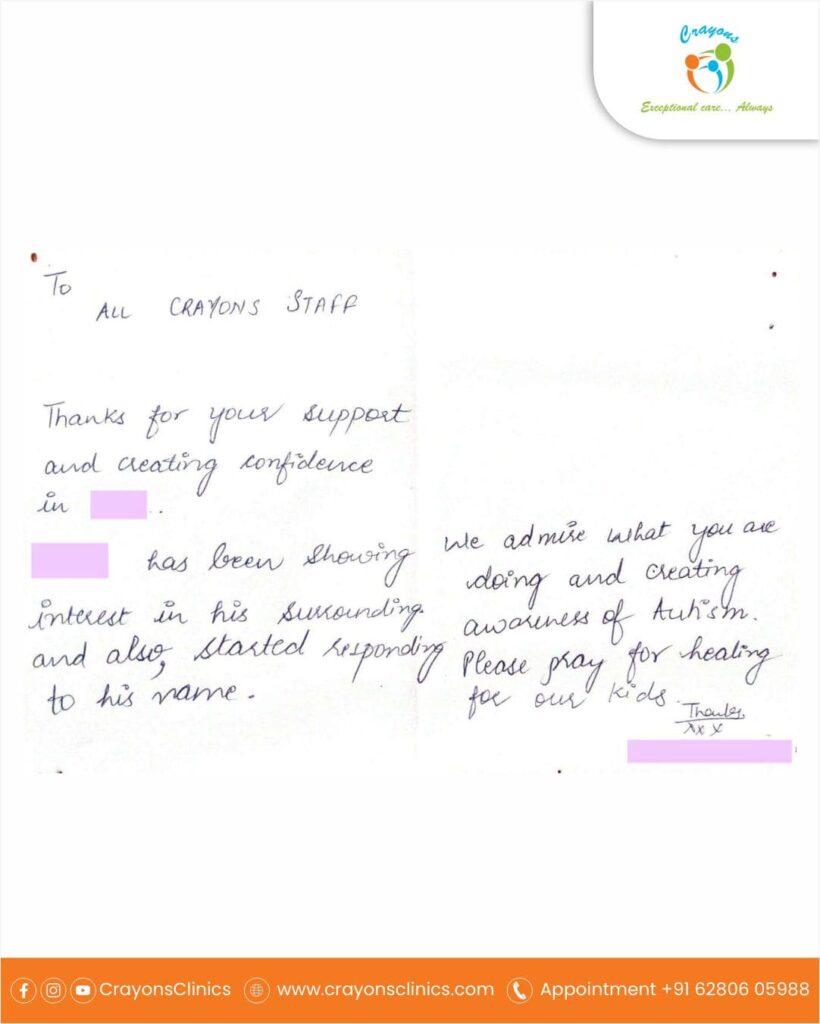 Crayons
Exceptional care... Always
To
ALL CRAYONS STAFF
Thanks for your support
and creating confidence
in ..
has been showing
interest in his surrounding.
and also, started responding
to his name.
We admire what you are
doing and creating
awareness of Autism.
Please pray for healing
for our kids.
Thanks
xx x
CrayonsClinics www.crayonsclinics.com Appointment +91 62806 05988